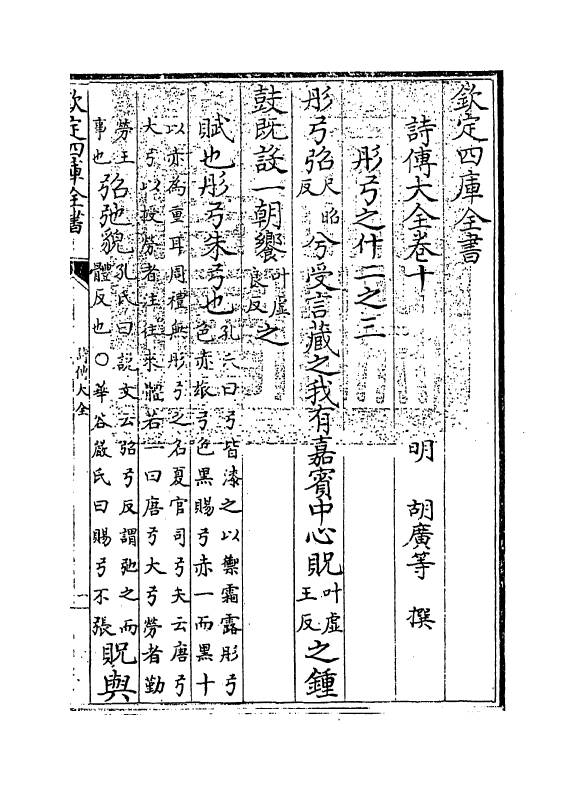 欽定四庫全書
詩傳大全卷十 明 胡廣等 撰
彤弓之什二之三
彤弓弨尺昭反兮受言藏之我有嘉賓中心貺叶虛王反之鍾
鼓既設一朝饗叶虛良反之
賦也彤弓朱弓也孔氏曰弓皆漆之以禦霜露彤弓色赤旅弓色黑賜弓赤一而黑十
以赤為重耳周禮無彤弓之名夏官司弓矢云唐弓大弓以授勞者注往來體若一曰唐弓大弓勞者勤
勞王事也弨弛貌孔氏曰說文云弨弓反謂弛之而體反也○華谷嚴氏曰賜弓不張貺與
欽定四庫全書 詩傳大全 一